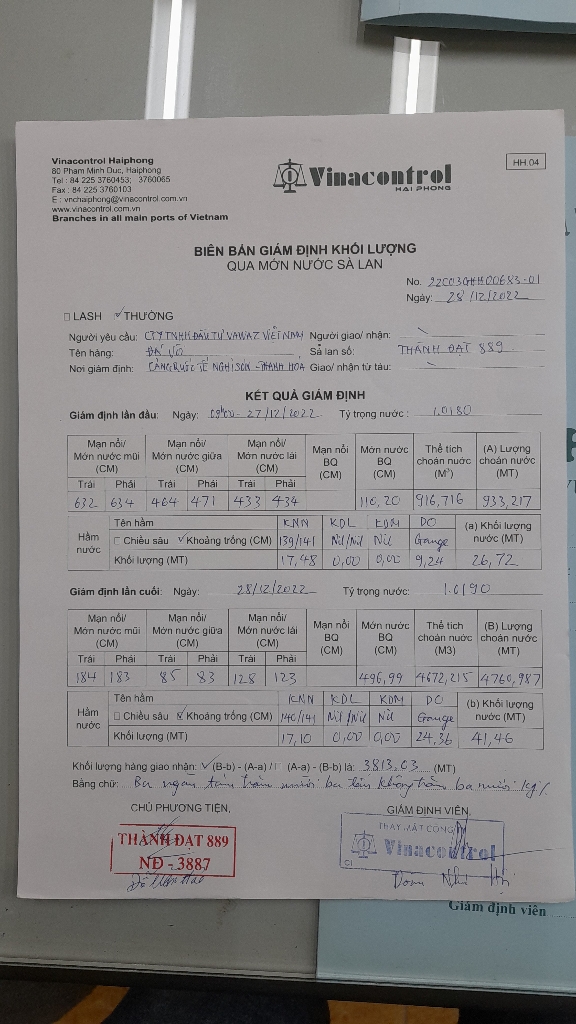 Vinacontrol Haiphong
80 Pham Minh Duc, Haiphong
Tel : 84 225 3760453; 3760065
Fax : 84 225 3760103
E : vnchaiphong@vinacontrol.com.vn
www.vinacontrol.com.vn
Branches in all main ports of Vietnam
Vinacontrol
HAI PHONG
HH.04
BIÊN BẢN GIÁM ĐỊNH KHỐI LƯỢNG
QUA MỚN NƯỚC SÀ LAN
No. 22C03GHH00683-01
Ngày: 28/12/2022
LASH THƯỜNG
Người yêu cầu: CTY TNHH ĐẦU TƯ VAWAZ VIỆT NAM Người giao/ nhận:
Tên hàng: ĐÁ VÔI Sà lan số: THÀNH ĐẠT 889
Nơi giám định: CẢNG QUỐC TẾ NGHI SƠN - THANH HÓA Giao/ nhận từ tàu:
KẾT QUẢ GIÁM ĐỊNH
Giám định lần đầu: Ngày: 09h00 - 27/12/2022 Tỷ trọng nước : 1.0180
Mạn nổi/ Mớn nước mũi (CM) Mạn nổi/ Mớn nước giữa (CM) Mạn nổi/ Mớn nước lái (CM) Mạn nổi BQ (CM) Mớn nước BQ (CM) Thể tích choán nước (M³) (A) Lượng choán nước (MT)
Trái Phải Trái Phải Trái Phải
632 634 464 471 433 434 110,20 916,716 933,217
Hầm nước Tên hầm KNN KDL KDM DO (a) Khối lượng nước (MT)
Chiều sâu Khoảng trống (CM) 139/141 Nil/Nil Nil Gauge
Khối lượng (MT) 17,48 0,00 0,00 9,24 26,72
Giám định lần cuối: Ngày: 28/12/2022 Tỷ trọng nước: 1.0190
Mạn nổi/ Mớn nước mũi (CM) Mạn nổi/ Mớn nước giữa (CM) Mạn nổi/ Mớn nước lái (CM) Mạn nổi BQ (CM) Mớn nước BQ (CM) Thể tích choán nước (M3) (B) Lượng choán nước (MT)
Trái Phải Trái Phải Trái Phải
184 183 85 83 128 123 496,99 4672,215 4760,987
Hầm nước Tên hầm KNN KDL KDM DO (b) Khối lượng nước (MT)
Chiều sâu Khoảng trống (CM) 140/141 Nil/Nil Nil Gauge
Khối lượng (MT) 17,10 0,00 0,00 24,36 41,46
Khối lượng hàng giao nhận: (B-b) - (A-a) / (A-a) - (B-b) là: 3813,03 (MT)
Bằng chữ: Ba ngàn tám trăm mười ba tấn không trăm ba mươi kg
CHỦ PHƯƠNG TIỆN,
GIÁM ĐỊNH VIÊN,
THÀNH ĐẠT 889
NĐ - 3887
THAY MẶT CÔNG
Vinacontrol
Giám định viên